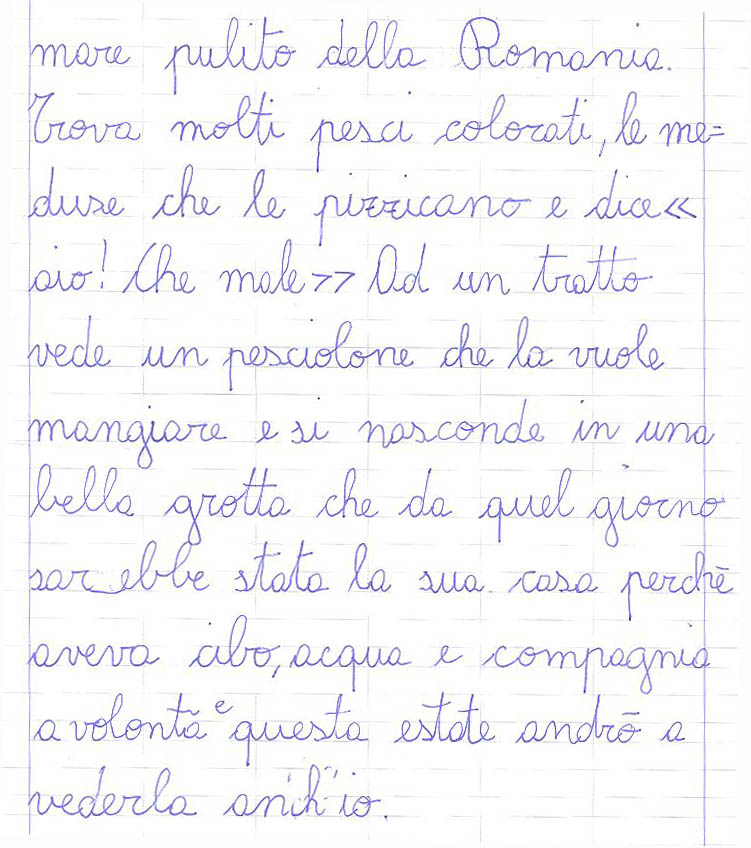 mare pulito della Romania.
Trova molti pesci colorati, le me=
duse che le pizzicano e dice <<
aio! Che male>> Ad un tratto
vede un pesciolone che la vuole
mangiare e si nasconde in una
bella grotta che da quel giorno
sarebbe stata la sua casa perchē
aveva cibo, acqua e compagnia
a volontā e questa estate andrō a
vederla anch'io.